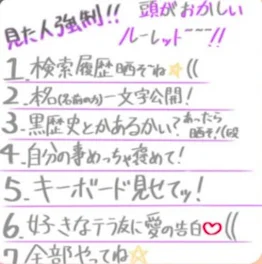 見た人強制!!
頭がおかしい
ルーレット~~~!!
1.検索履歴晒そね☆((
2.本名(名前のみ)一文字公開!
3.黒歴史とかあるかい?あったら晒そ!(殴
4.自分の事めっちゃ褒めて!
5.キーボード見せてッ!
6.好きなテラ友に愛の告白♡((
7.全部やってね☆